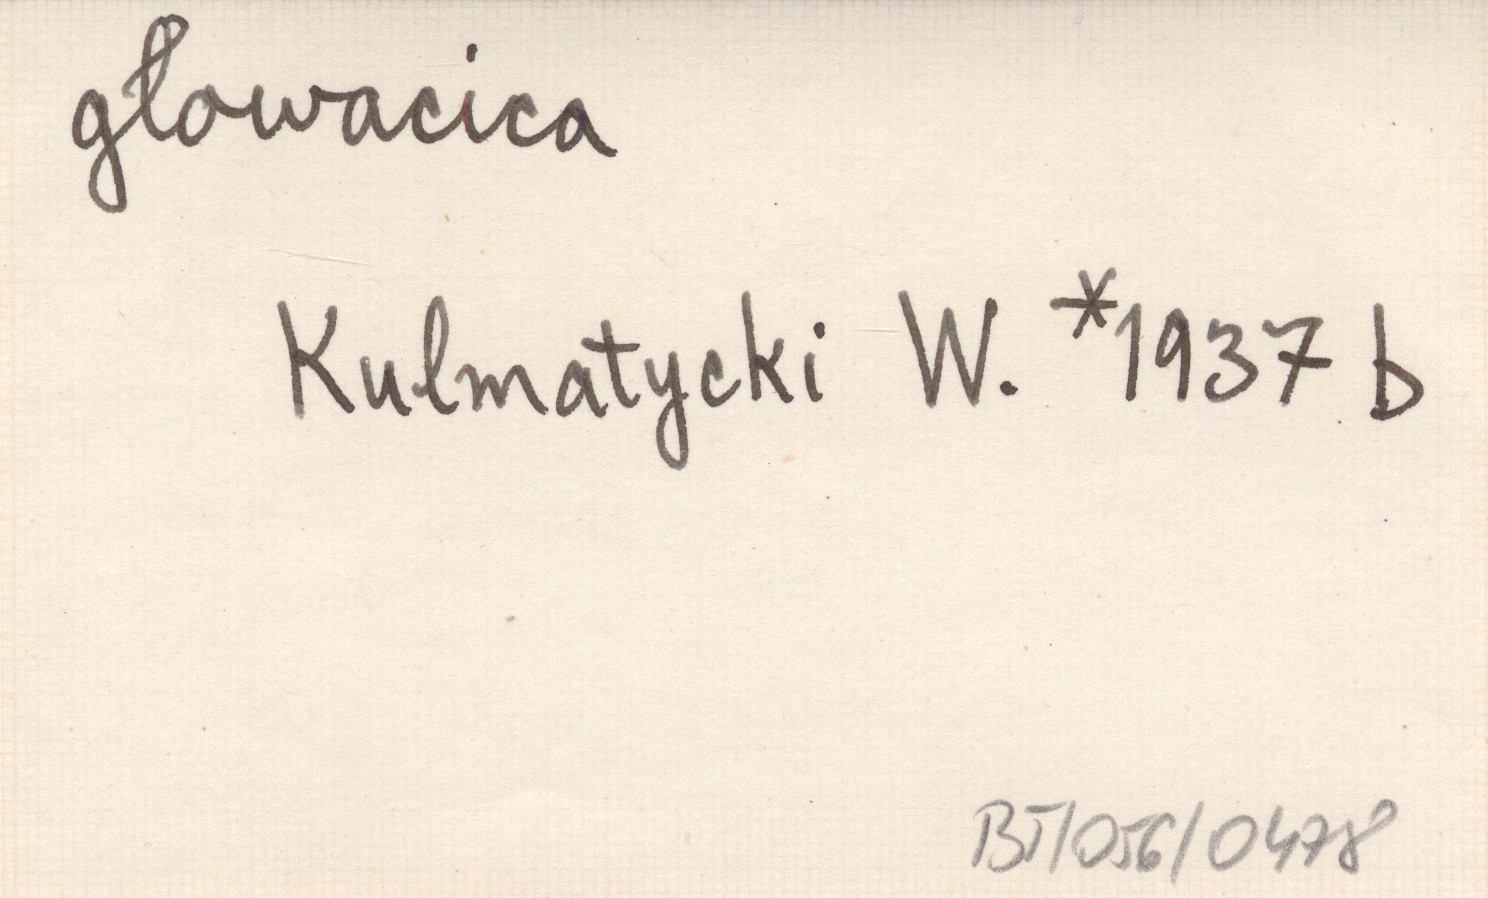 głowacica
Kulmatycki W. *1937 b
BT/056/0478